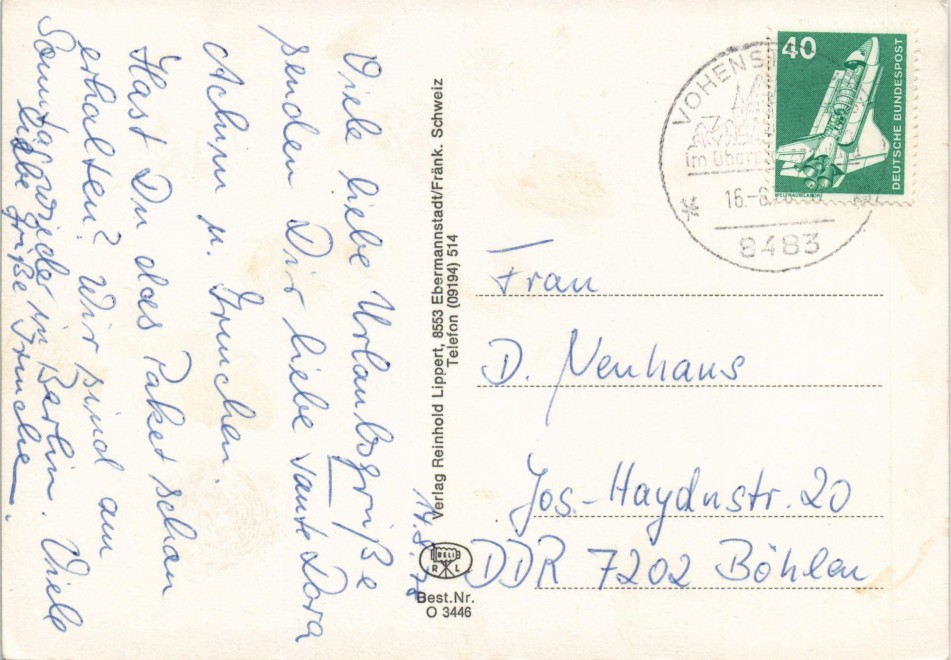 14.8.78
Viele liebe Urlaubsgrüße
senden Dir liebe Tante Dora
Achim u. Trudchen.
Hast Du das Paket schon
erhalten? Wir sind am
Sonntag wieder in Berlin. Viele
liebe Grüße Trudchen.
Verlag Reinhold Lippert, 8553 Ebermannstadt/Fränk. Schweiz
Telefon (09194) 514
BELI
R L
Best.Nr.
O 3446
40
DEUTSCHE BUNDESPOST
WELTRAUMLABOR
VOHENS
im Oberp
16.-8.
8483
Frau
D. Neuhaus
Jos.-Haydnstr. 20
DDR 7202 Böhlen